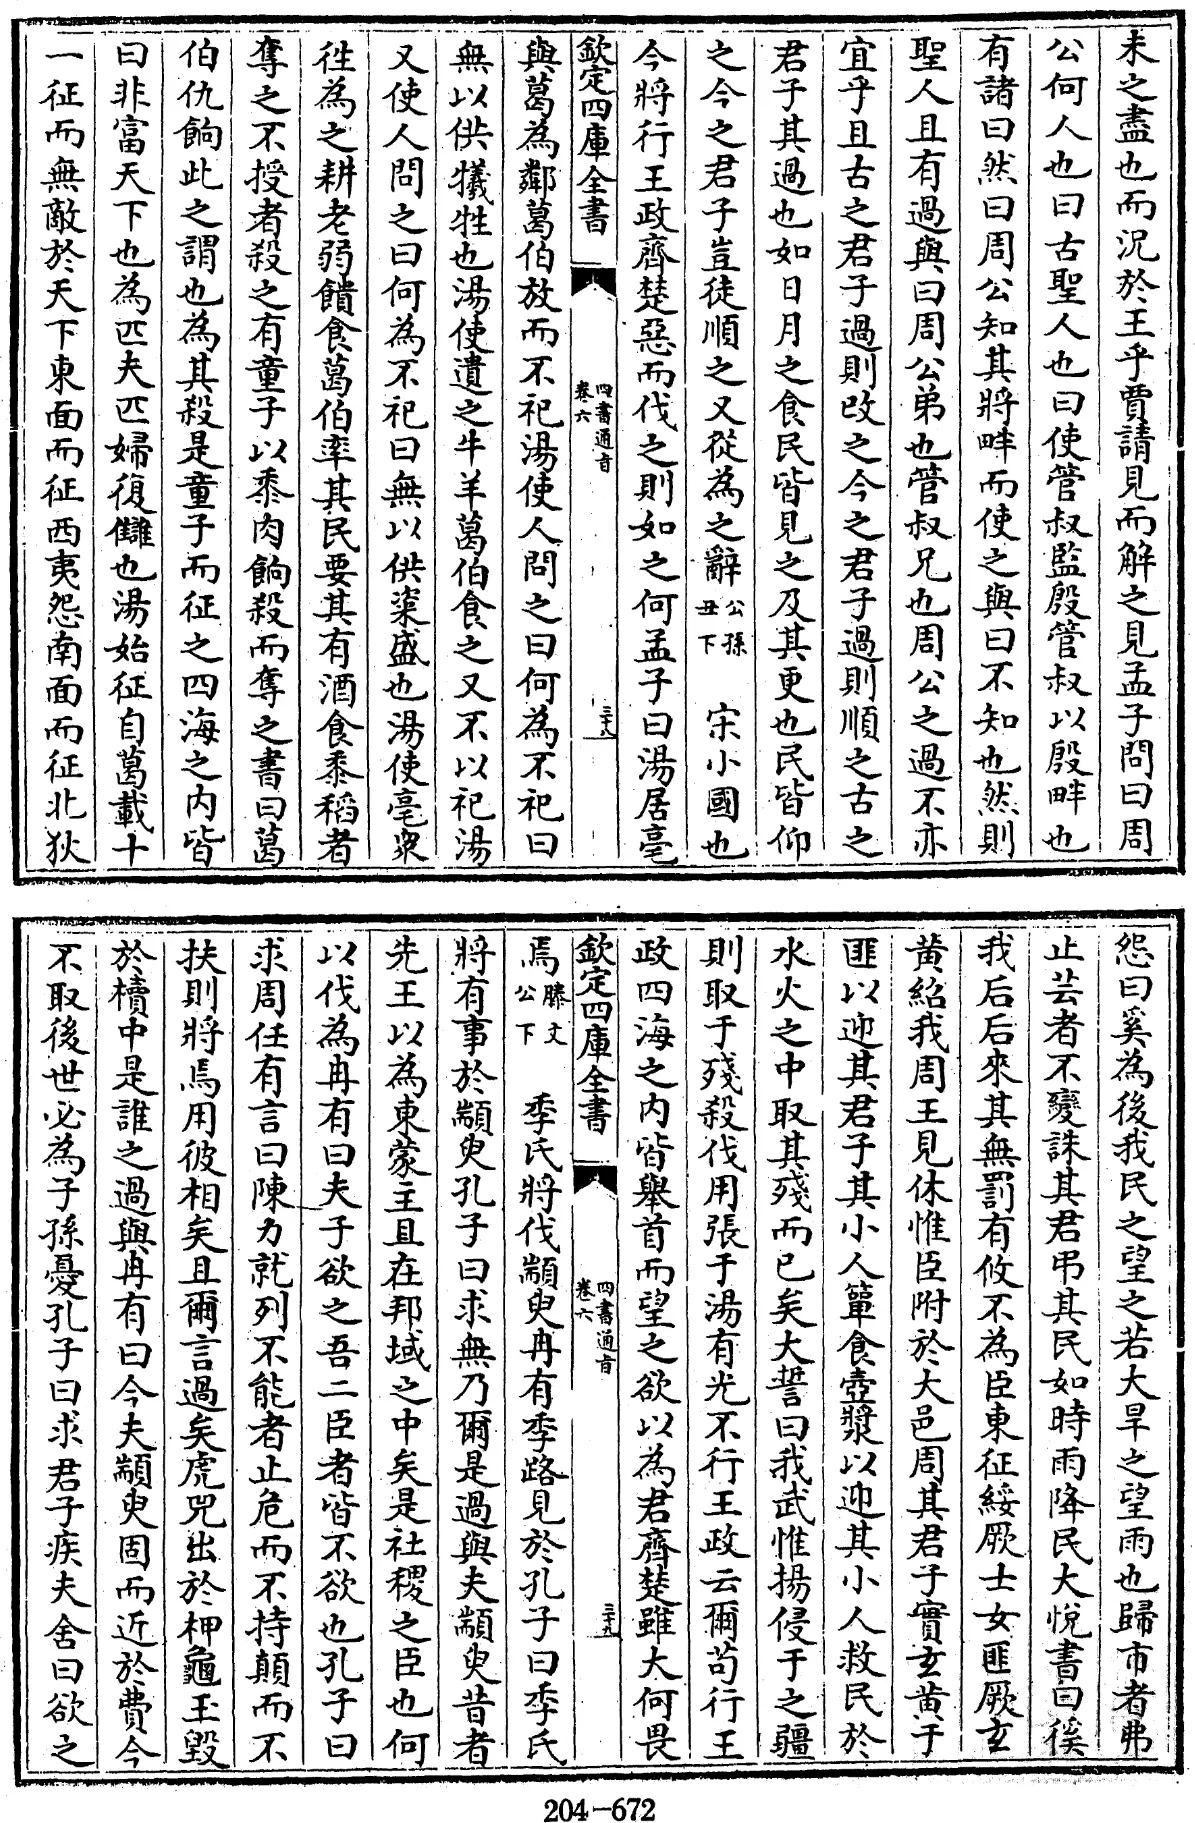 未之盡也而況於王乎賈請見而解之見孟子問曰周
公何人也曰古聖人也曰使管叔監殷管叔以殷畔也
有諸曰然曰周公知其將畔而使之與曰不知也然則
聖人且有過與曰周公弟也管叔兄也周公之過不亦
宜乎且古之君子過則改之今之君子過則順之古之
君子其過也如日月之食民皆見之及其更也民皆仰
之今之君子豈徒順之又從為之辭公孫丑下　宋小國也
今將行王政齊楚惡而伐之則如之何孟子曰湯居亳
欽定四庫全書　四書通旨卷六　三十八
與葛為鄰葛伯放而不祀湯使人問之曰何為不祀曰
無以供犧牲也湯使遺之牛羊葛伯食之又不以祀湯
又使人問之曰何為不祀曰無以供粢盛也湯使亳衆
徃為之耕老弱饋食葛伯率其民要其有酒食黍稻者
奪之不授者殺之有童子以黍肉餉殺而奪之書曰葛
伯仇餉此之謂也為其殺是童子而征之四海之内皆
曰非富天下也為匹夫匹婦復讎也湯始征自葛載十
一征而無敵於天下東面而征西夷怨南面而征北狄
怨曰奚為後我民之望之若大旱之望雨也歸市者弗
止芸者不變誅其君弔其民如時雨降民大悅書曰徯
我后后來其無罰有攸不為臣東征綏厥士女匪厥玄
黄紹我周王見休惟臣附於大邑周其君子實玄黄于
匪以迎其君子其小人簞食壺漿以迎其小人救民於
水火之中取其殘而已矣大誓曰我武惟揚侵于之疆
則取于殘殺伐用張于湯有光不行王政云爾苟行王
政四海之内皆舉首而望之欲以為君齊楚雖大何畏
欽定四庫全書　四書通旨卷六　三十九
焉滕文公下　季氏將伐顓臾冉有季路見於孔子曰季氏
將有事於顓臾孔子曰求無乃爾是過與夫顓臾昔者
先王以為東蒙主且在邦域之中矣是社稷之臣也何
以伐為冉有曰夫子欲之吾二臣者皆不欲也孔子曰
求周任有言曰陳力就列不能者止危而不持顛而不
扶則將焉用彼相矣且爾言過矣虎兕出於柙龜玉毀
於櫝中是誰之過與冉有曰今夫顓臾固而近於費今
不取後世必為子孫憂孔子曰求君子疾夫舍曰欲之
204-672